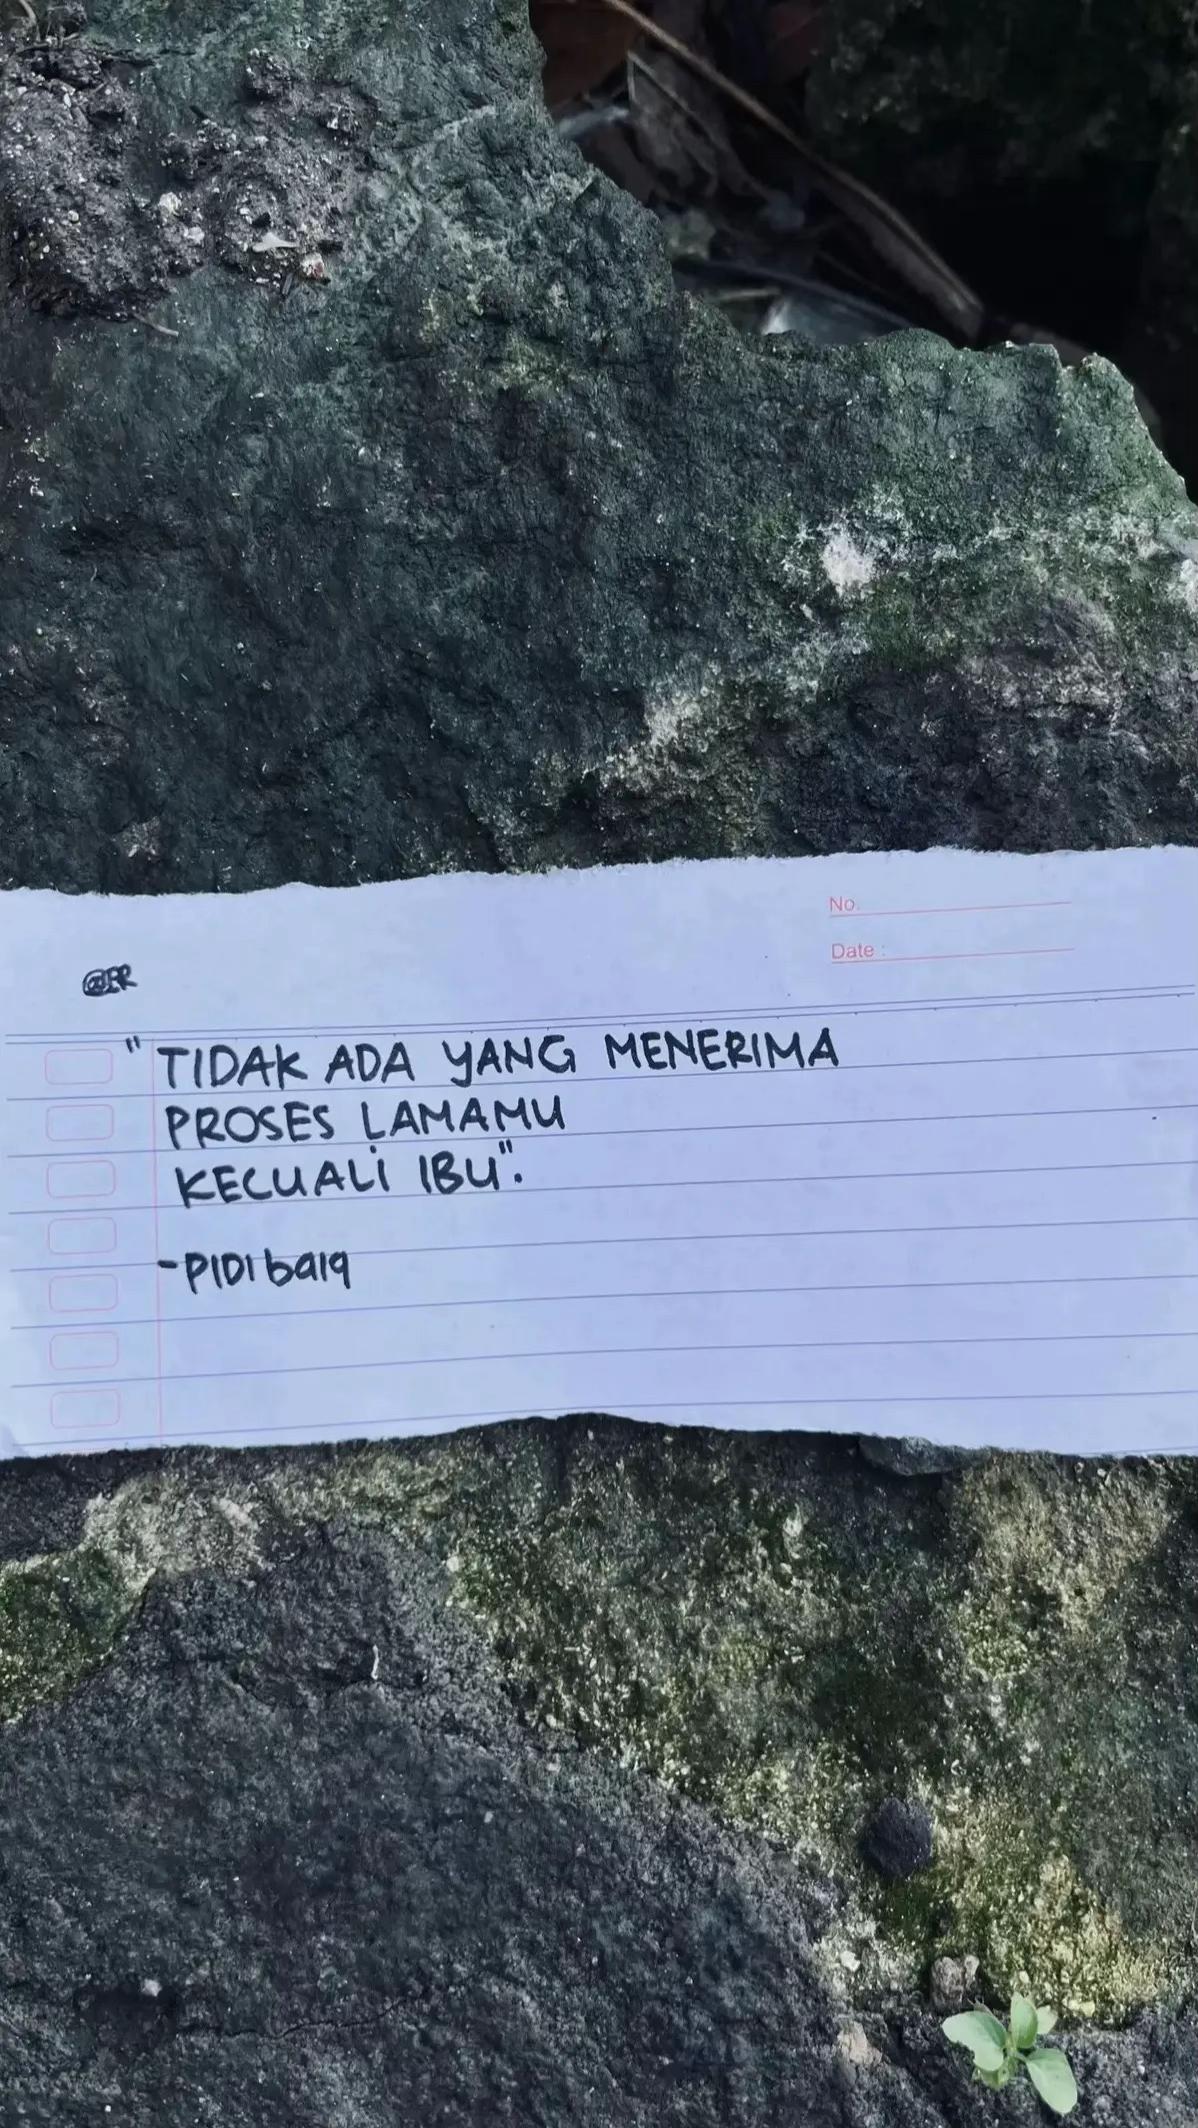 No.
Date :
@ER
"TIDAK ADA YANG MENERIMA
PROSES LAMAMU
KECUALI IBU".
-PIDI baiq